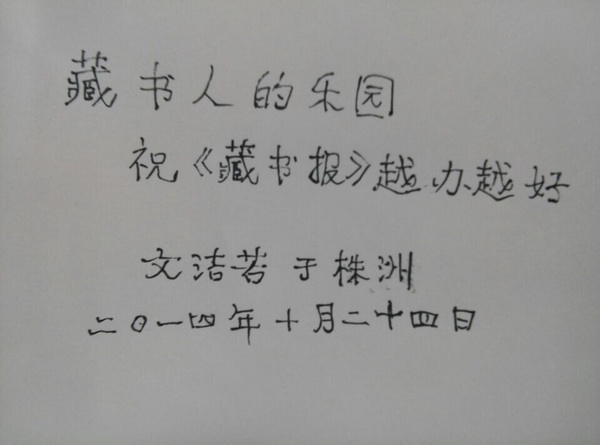 藏书人的乐园
祝《藏书报》越办越好
文洁若于株洲
二〇一四年十月二十四日